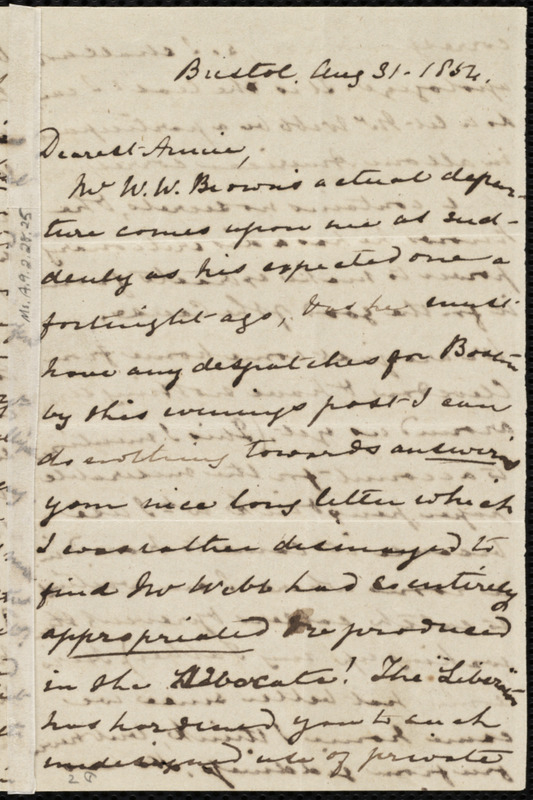 Bristol. Aug 31-1854.
Dearest Annie,
Mr W. W. Brown's actual depar-
ture comes upon me as sud-
denly as his expected one a
fortnight ago, & as he must
have any despatches for Boston
by this evenings post I can
do nothing towards answering
your nice long letter which
I was rather dismayed to
find Mr Webb had so entirely
appropriated & reproduced
in the Advocate! The "Liberator"
has hardened you to such
undesigned use of private
Ms.A.9.2.28.25